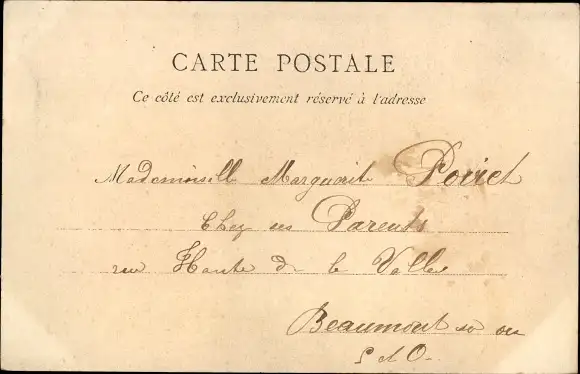 CARTE POSTALE
Ce côté est exclusivement réservé à l'adresse
Mademoiselle Marguerite Poiret
Chez ses Parents
rue Haute de la Vallée
Beaumont so ou
S et O.